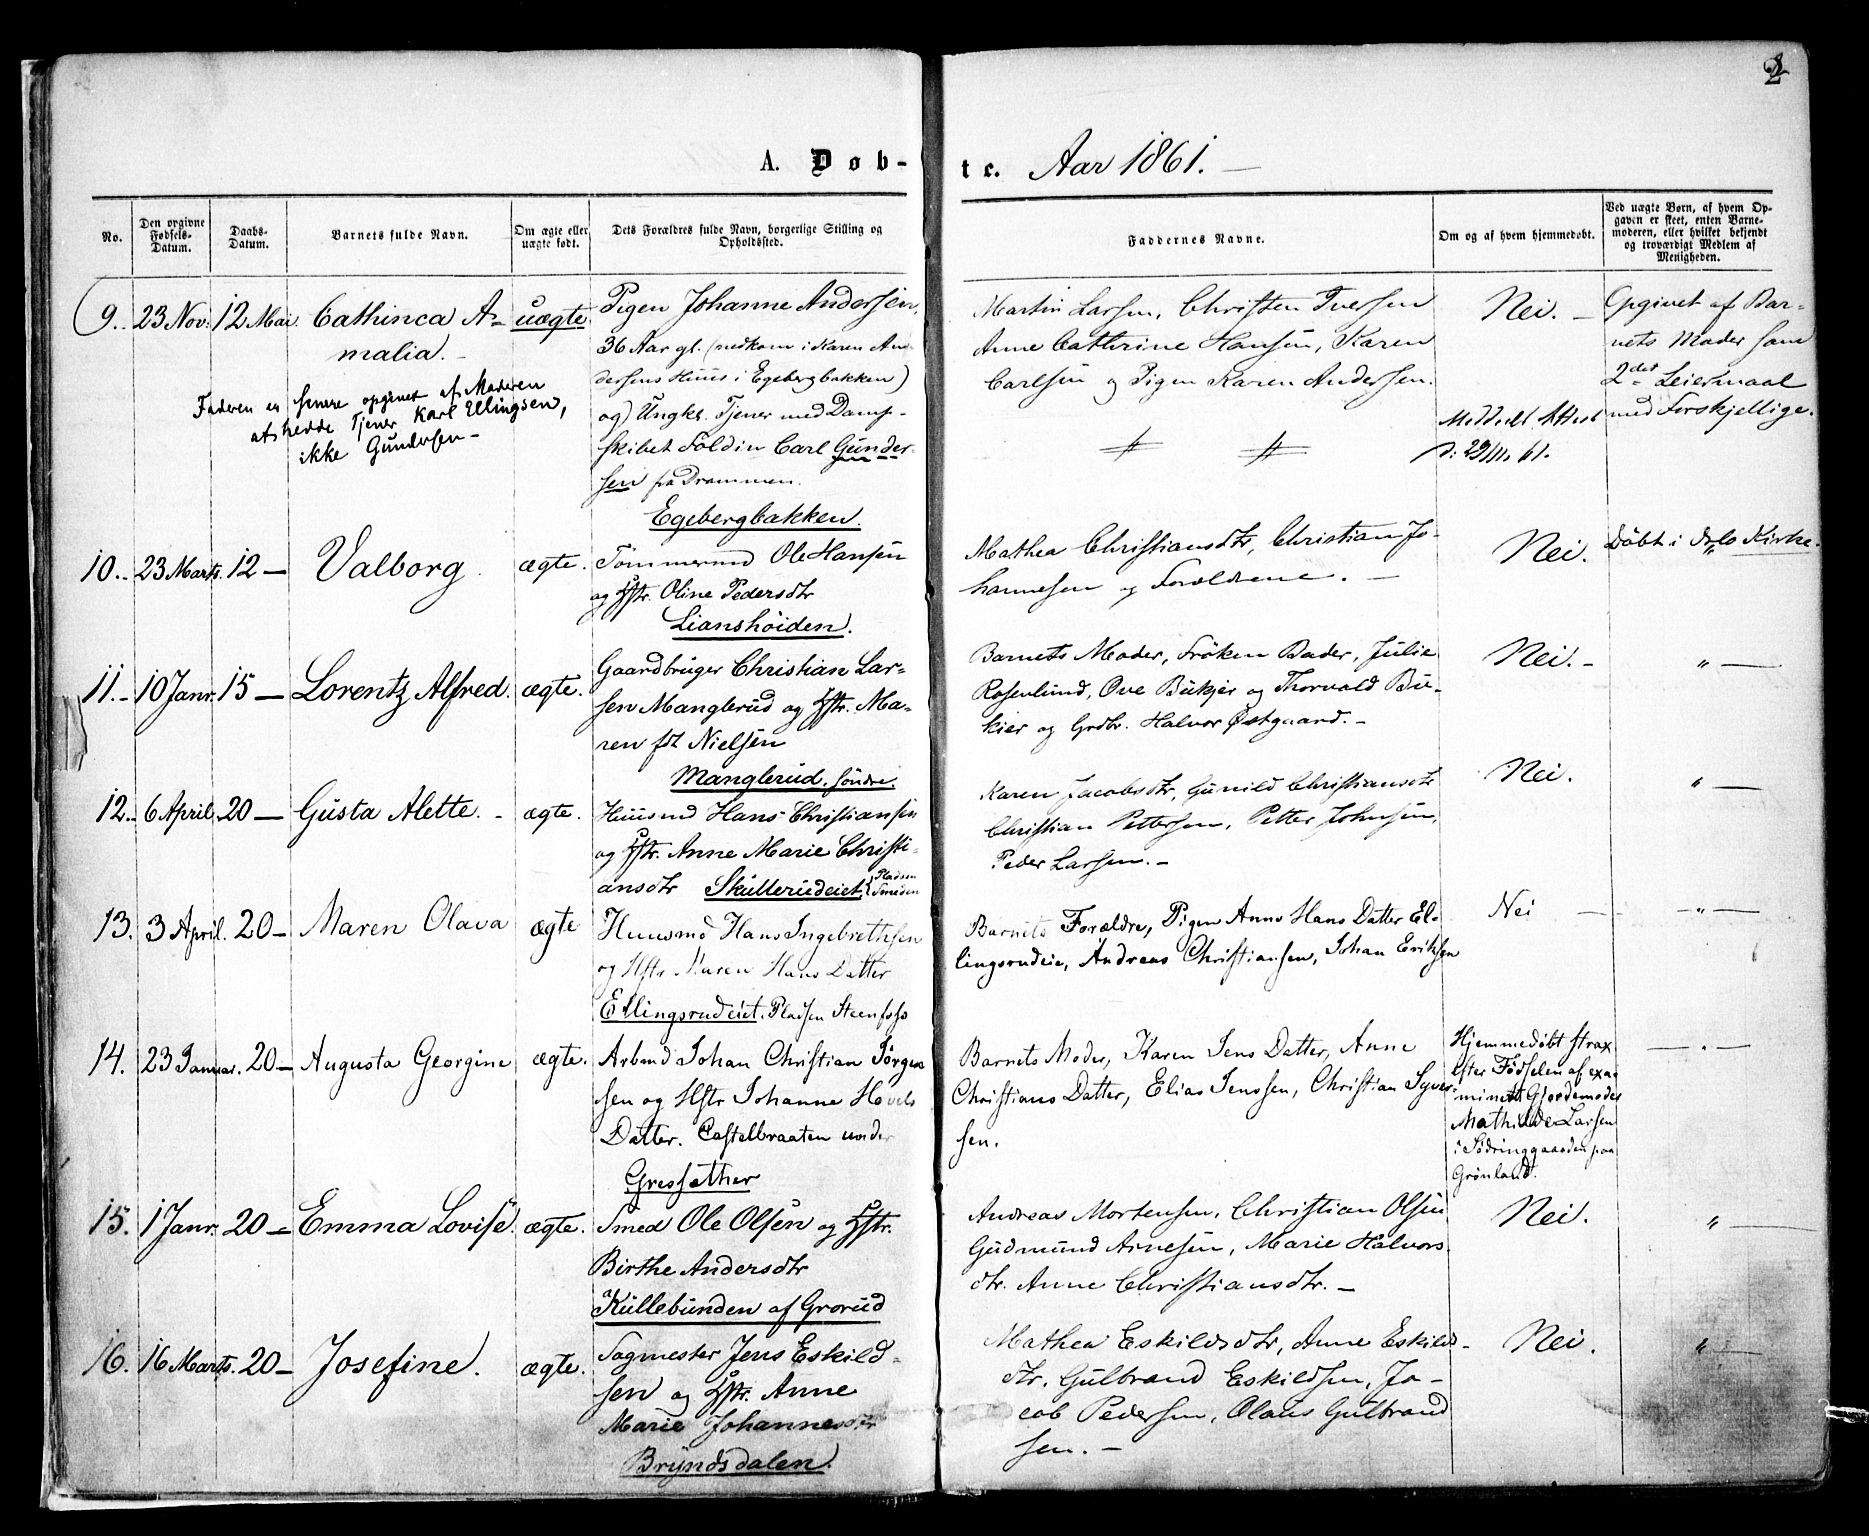 2
A. Døb-
te. Aar 1861.
No.
Den opgivne Fødsels-Datum.
Daabs-Datum.
Barnets fulde Navn.
Om ægte eller uægte født.
Dets Forældres fulde Navn, borgerlige Stilling og Opholdssted.
Faddernes Navne.
Om og af hvem hjemmedøbt.
Ved uægte Børn, af hvem Opgaven er skeet, enten Barnemoderen, eller hvilket bekjendt og troværdigt Medlem af Menigheden.
9. 23 Nov. 12 Mai Cathinca A-
malia.
uægte
Pigen Johanne Andersen,
36 Aar gl. (nedkom i Karen An-
dersens Huus i Egebergbakken)
og) Ungkl. Tjener med Damp-
skibet Foldin Carl Gunder-
sen fra Drammen.
Egebergbakken.
Faderen er senere opgivet af Moderen
at hedde Tjener Karl Ellingsen,
ikke Gundersen
Martin Larsen, Christen Iversen
Anne Cathrine Hansen, Karen
Carlsen og Pigen Karen Andersen.
Nei.
Meddeelt Attest
d: 29/11. 61.
Opgivet af Bar-
nets Moder som
2det Leiermaal
med Forskjellige.
10. 23 Marts. 12 — Valborg. ægte.
Tømmermd Ole Hansen
og Hstr. Oline Pedersdtr
Lianshøiden.
Mathea Christiansdtr, Christian Jo-
hannesen og Forældrene.
Nei.
Døbt i Oslo Kirke.
11. 10 Janr. 15 — Lorentz Alfred. ægte.
Gaardbruger Christian Lar-
sen Manglerud og Hstr. Ma-
ren fdt Nielsen
Manglerud, søndre.
Barnets Moder, Frøken Bader, Julie
Rosenlund, Ove Bukjer og Thorvald Bu-
kier og Grdbr. Halvor Østgaard.
Nei. — " —
12. 6 April. 20 — Gusta Alette. ægte.
Huusmd Hans Christiansen
og Hstr. Anne Marie Christi-
ansdtr Skullerudeiet, Pladsen
Smeden
Karen Jacobsdtr, Gunild Christiansdtr
Christian Pettersen, Petter Johnsen,
Peder Larsen.
Nei. " —
13. 3 April. 20 — Maren Olava ægte
Huusmd Hans Ingebrethsen
og Hstr Maren Hans Datter
Ellingsrudeiet, Pladsen Steenfoss
Barnets Forældre, Pigen Anne Hans Datter El-
lingsrudeie, Andreas Christiansen, Johan Eriksen
Nei — " —
14. 23 Januar. 20 — Augusta Georgine ægte.
Arbmd Johan Christian Jørgen
sen og Hstr Johanne Hovels
Datter. Castelbraaten under
Gresfæther
Barnets Moder, Karen Jens Datter, Anne
Christians Datter, Elias Jenssen, Christian Syver-
sen.
Hjemmedøbt strax
efter Fødselen af exa-
mineret Gjordemoder
Mathilde Larsen
i Sødringgaarden paa
Grønland.
— " —
15. 1 Janr. 20 — Emma Lovise. ægte.
Smed Ole Olsen og Hstr.
Birthe Andersdtr
Kullebunden af Grorud
Andreas Mortensen, Christian Olsen
Gudmund Arnesen, Marie Halvors.
dtr. Anne Christiansdtr.
Nei. " —
16. 16 Marts. 20 — Josefine. ægte.
Sagmester Jens Eskild-
sen og Hstr. Anne
Marie Johannesdtr
Bryndsdalen.
Mathea Eskildsdtr, Anne Eskilds-
dtr. Gulbrand Eskildsen, Ja-
cob Pedersen, Olaus Gulbrand
sen.
Nei. " —